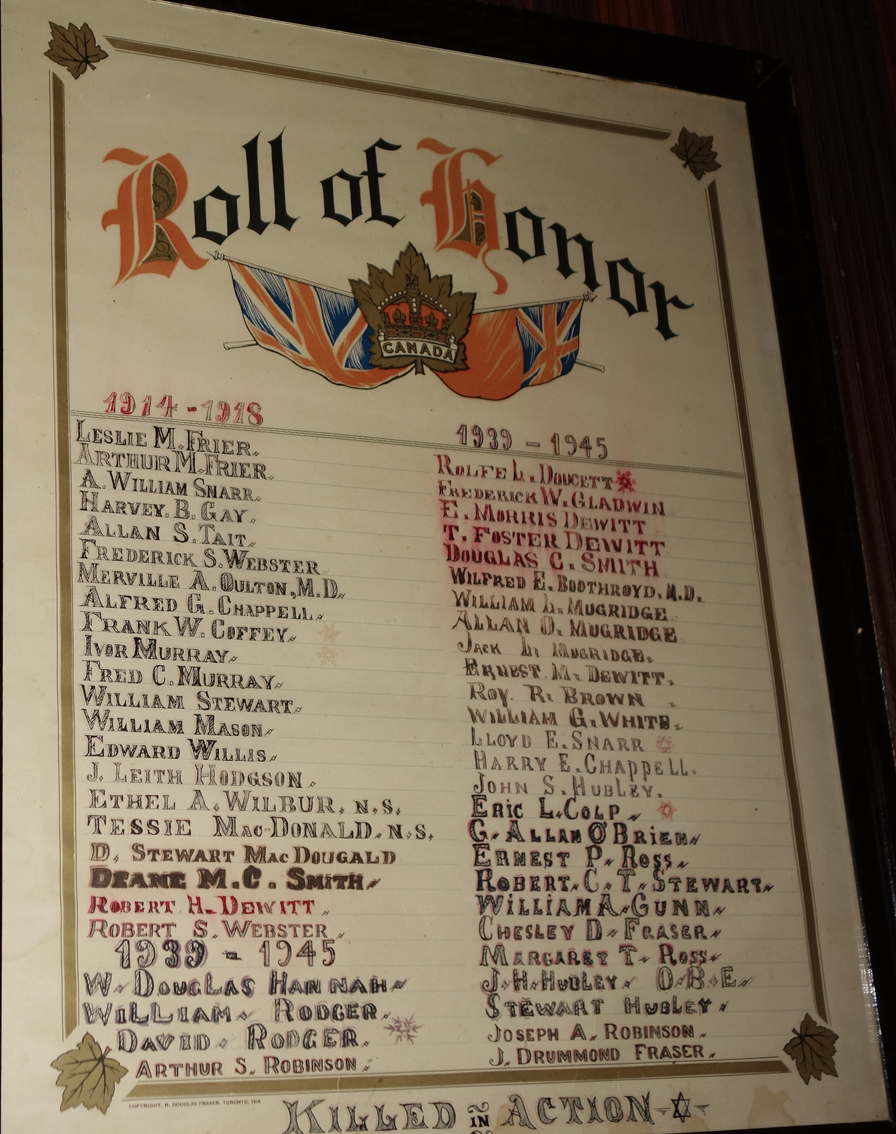 Roll of Honor
CANADA
1914-1918
LESLIE M. FRIER.
ARTHUR M. FRIER.
A. WILLIAM SNARR.
HARVEY. B. GAY.
ALLAN S. TAIT.
FREDERICK S. WEBSTER
MERVILLE A. OULTON, M.D.
ALFRED G. CHAPPELL.
FRANK W. COFFEY.
IVOR MURRAY.
FRED C. MURRAY.
WILLIAM STEWART.
WILLIAM MASON.
EDWARD WILLIS.
J. LEITH HODGSON.
ETHEL A. WILBUR, N.S.
TESSIE MacDONALD. N.S.
D. STEWART MacDOUGALD
DEANE M. C. SMITH.
ROBERT H. DEWITT.
ROBERT S. WEBSTER.
1939 - 1945
W. DOUGLAS HANNAH.
WILLIAM RODGER.
DAVID RODGER.
ARTHUR S. ROBINSON.
1939 - 1945
ROLFE L. DOUCETT
FREDERICK W. GLADWIN
E. MORRIS DEWITT
T. FOSTER DEWITT
DOUGLAS C. SMITH
WILFRED E. BOOTHROYD. M.D.
WILLIAM L. MUGRIDGE
ALLAN O. MUGRIDGE
JACK L. MUGRIDGE.
ERNEST M. DEWITT.
ROY R. BROWN.
WILLIAM G. WHITE.
LLOYD E. SNARR
HARRY E. CHAPPELL.
JOHN S. HUBLEY.
ERIC L. COLP.
G. ALLAN O'BRIEN.
ERNEST P. ROSS.
ROBERT. C. T. STEWART.
WILLIAM A. GUNN.
CHESLEY D. FRASER.
MARGARET T. ROSS.
J. H. HUBLEY. O.B.E.
STEWART HUBLEY.
JOSEPH A. ROBINSON.
J. DRUMMOND FRASER.
COPYRIGHT, R. DOUGLAS FRASER, TORONTO,
KILLED IN ACTION